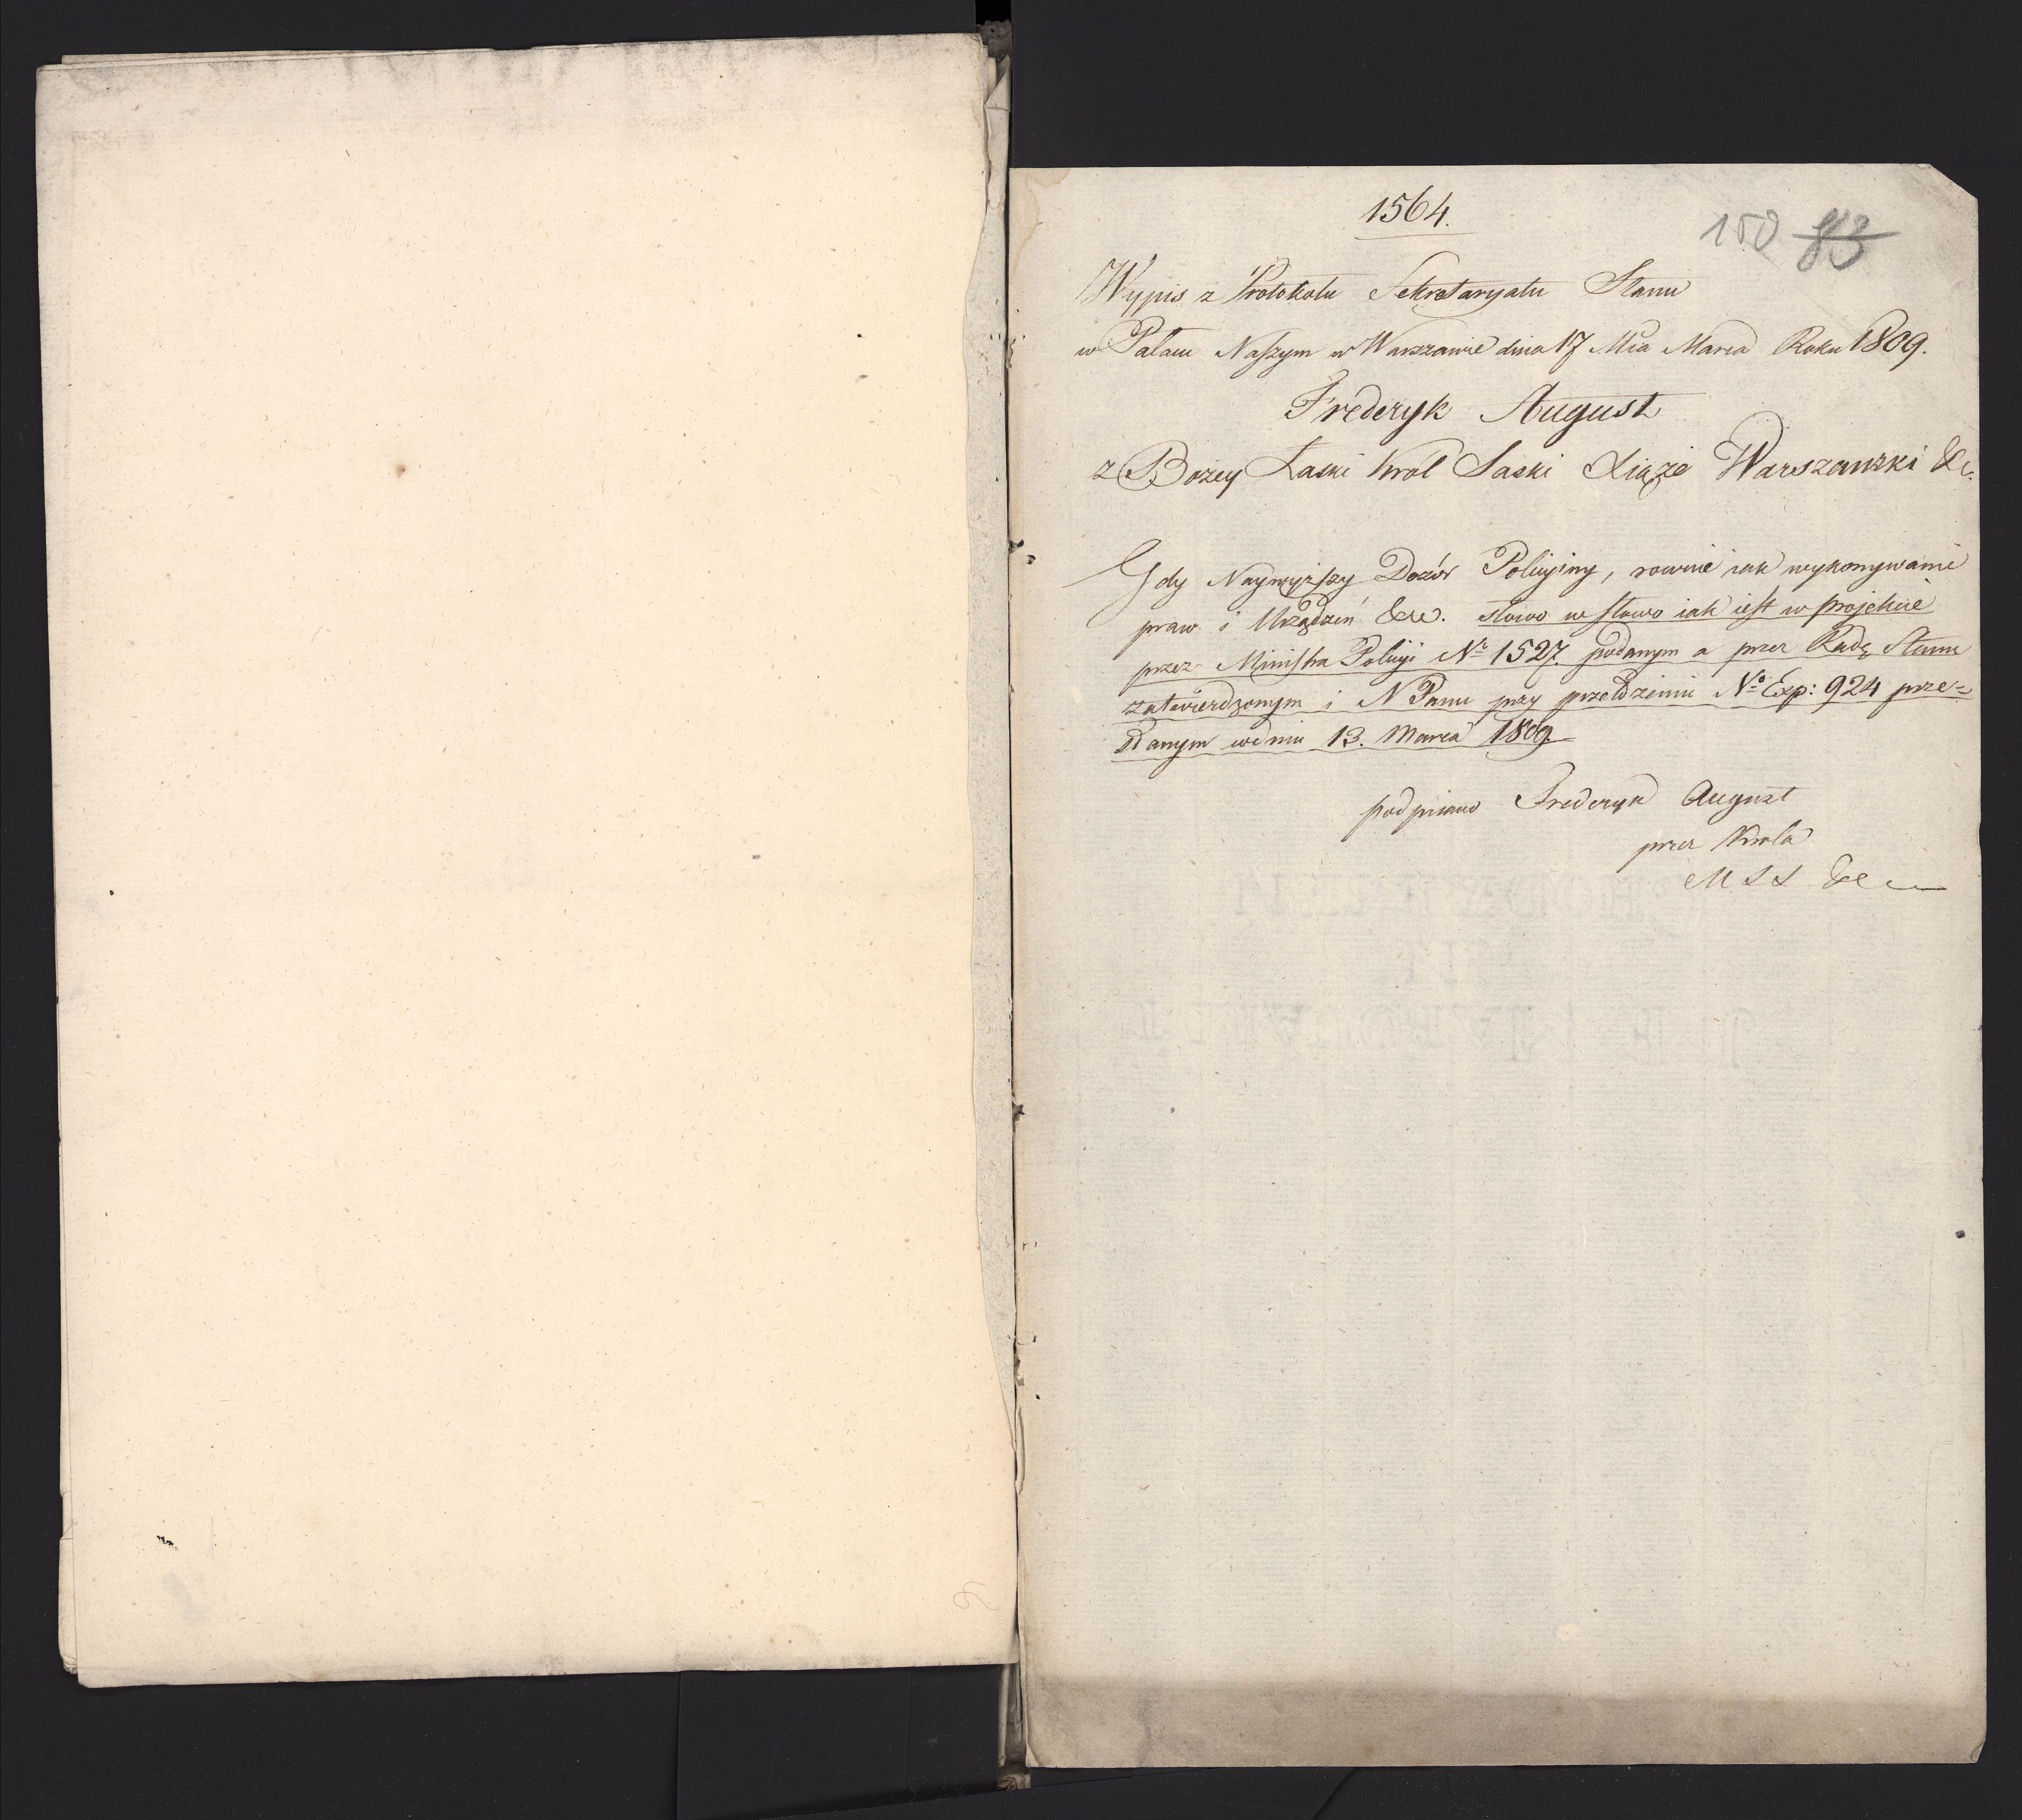 1564.
150 83
Wypis z Protokołu Sekretaryatu Stanu
w Pałacu Naszym w Warszawie dnia 17 Mca Marca Roku 1809.
Frederyk August
z Bożey Łaski Krol Saski Xiąże Warszawski &c.
Gdy Naywyższy Dozór Policyiny, rownie iak wykonywanie
praw i Urządzeń &c. słowo w słowo iak iest w projekcie
przez Ministra Policyi No 1527. podanym a przez Radę Stanu
zatwierdzonym i N Panu przy No Exp: 924 prze=
słanym w dniu 13. Marca 1809.
podpisano Frederyk August
przez Krola
M S S &c